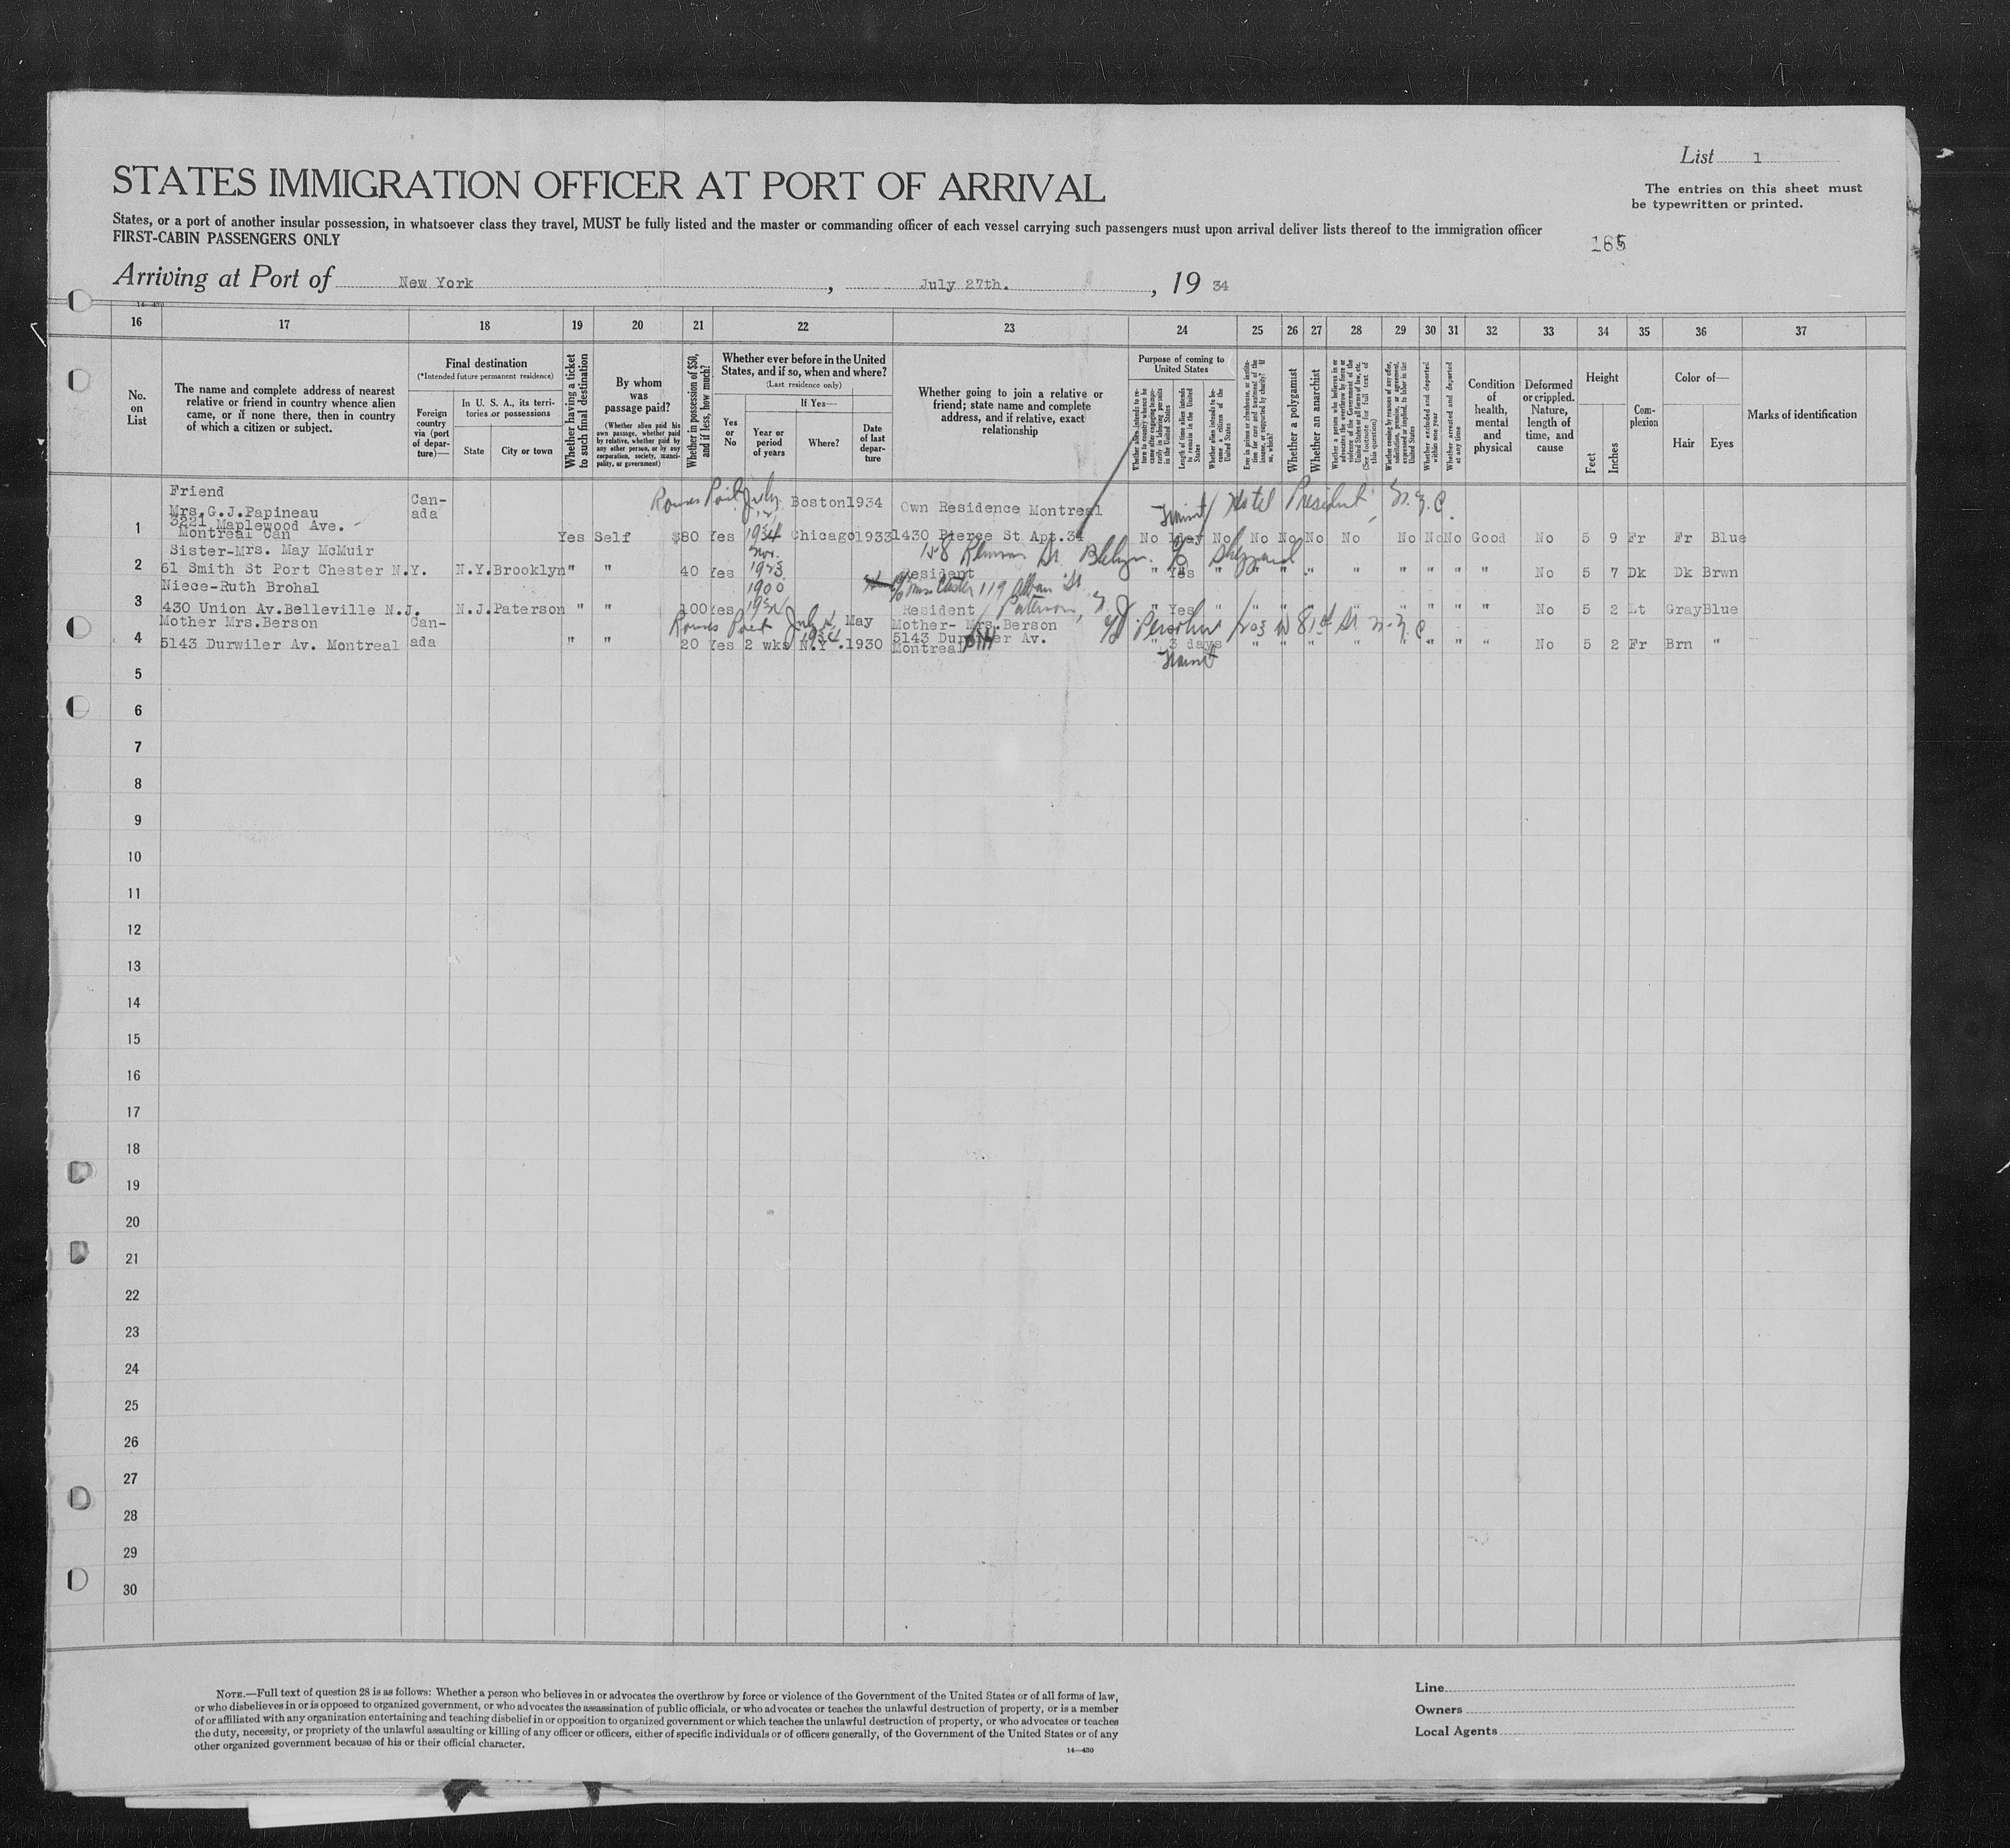 List 1
STATES IMMIGRATION OFFICER AT PORT OF ARRIVAL
The entries on this sheet must
be typewritten or printed.
States, or a port of another insular possession, in whatsoever class they travel, MUST be fully listed and the master or commanding officer of each vessel carrying such passengers must upon arrival deliver lists thereof to the immigration officer
FIRST-CABIN PASSENGERS ONLY
165
Arriving at Port of New York, July 27th., 19 34
14-430
16 17 18 19 20 21 22 23 24 25 26 27 28 29 30 31 32 33 34 35 36 37
No. on List
The name and complete address of nearest
relative or friend in country whence alien
came, or if none there, then in country
of which a citizen or subject.
Final destination
(*Intended future permanent residence)
Foreign country via (port of departure)—
In U. S. A., its territories or possessions
State
City or town
Whether having a ticket to such final destination
By whom was passage paid?
(Whether alien paid his own passage, whether paid by relative, whether paid by any other person, or by any corporation, society, municipality, or government)
Whether in possession of $50, and if less, how much?
Whether ever before in the United States, and if so, when and where?
(Last residence only)
Yes or No
If Yes—
Year or period of years
Where?
Date of last departure
Whether going to join a relative or
friend; state name and complete
address, and if relative, exact
relationship
Purpose of coming to United States
Whether alien intends to return to country whence he came after engaging temporarily in laboring pursuits in the United States
Length of time alien intends to remain in the United States
Whether alien intends to become a citizen of the United States
Ever in prison or almshouse, or institution for care and treatment of the insane, or supported by charity? If so, which?
Whether a polygamist
Whether an anarchist
Whether a person who believes in or advocates the overthrow by force or violence of the Government of the United States or all forms of law, etc. (See footnote for full text of this question)
Whether coming by reason of any offer, solicitation, promise, or agreement, expressed or implied, to labor in the United States
Whether excluded and deported within one year
Whether arrested and deported at any time
Condition of health, mental and physical
Deformed or crippled. Nature, length of time, and cause
Height
Feet
Inches
Complexion
Color of—
Hair
Eyes
Marks of identification
Friend
Mrs.G.J.Papineau Canada Rouses Point July Boston 1934 Own Residence Montreal Transit Hotel President, N.Y.C.
3221 Maplewood Ave.
1 Montreal Can Yes Self $80 Yes 1934 Chicago 1933 1430 Pierce St Apt.34 No 1day No No No No No No No No Good No 5 9 Fr Fr Blue
Sister-Mrs. May McMuir Nov. 158 Remsen St. Bklyn. c/o Sheppard
2 61 Smith St Port Chester N.Y. N.Y. Brooklyn " " 40 Yes 1923 Resident " Yes " " " " " " " " " No 5 7 Dk Dk Brwn
Niece-Ruth Brohal 1900 119 Albion St.
3 430 Union Av.Belleville N.J. N.J. Paterson " " 100 Yes 1934 Resident Paterson, N.J. " Yes " " " " " " " " " No 5 2 Lt Gray Blue
Mother Mrs.Berson Canada Rouses Point July May Mother- Mrs.Berson 203 W 81st St N.Y.C.
4 5143 Durwiler Av. Montreal " " 20 Yes 2 wks 1934 N.Y. 1930 5143 Durwiler Av. " 3 days " " " " " " " " " No 5 2 Fr Brn "
Montreal Transit
5
6
7
8
9
10
11
12
13
14
15
16
17
18
19
20
21
22
23
24
25
26
27
28
29
30
NOTE.—Full text of question 28 is as follows: Whether a person who believes in or advocates the overthrow by force or violence of the Government of the United States or of all forms of law,
or who disbelieves in or is opposed to organized government, or who advocates the assassination of public officials, or who advocates or teaches the unlawful destruction of property, or is a member
of or affiliated with any organization entertaining and teaching disbelief in or opposition to organized government or which teaches the unlawful destruction of property, or who advocates or teaches
the duty, necessity, or propriety of the unlawful assaulting or killing of any officer or officers, either of specific individuals or of officers generally, of the Government of the United States or of any
other organized government because of his or their official character.
14—430
Line
Owners
Local Agents